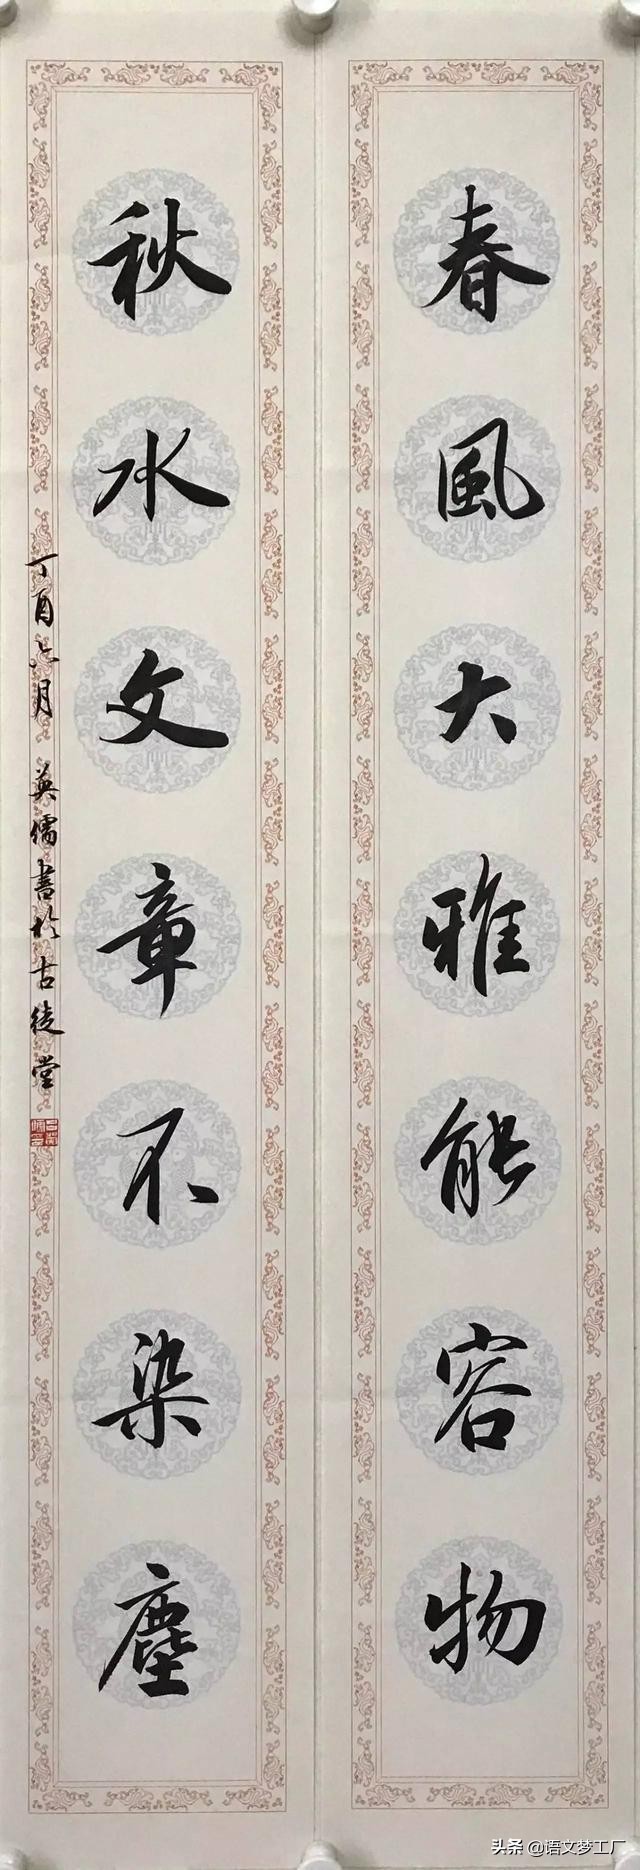 春風大雅能容物
秋水文章不染塵
丁酉六月 英儒書於古徒堂
头条 @语文梦工厂